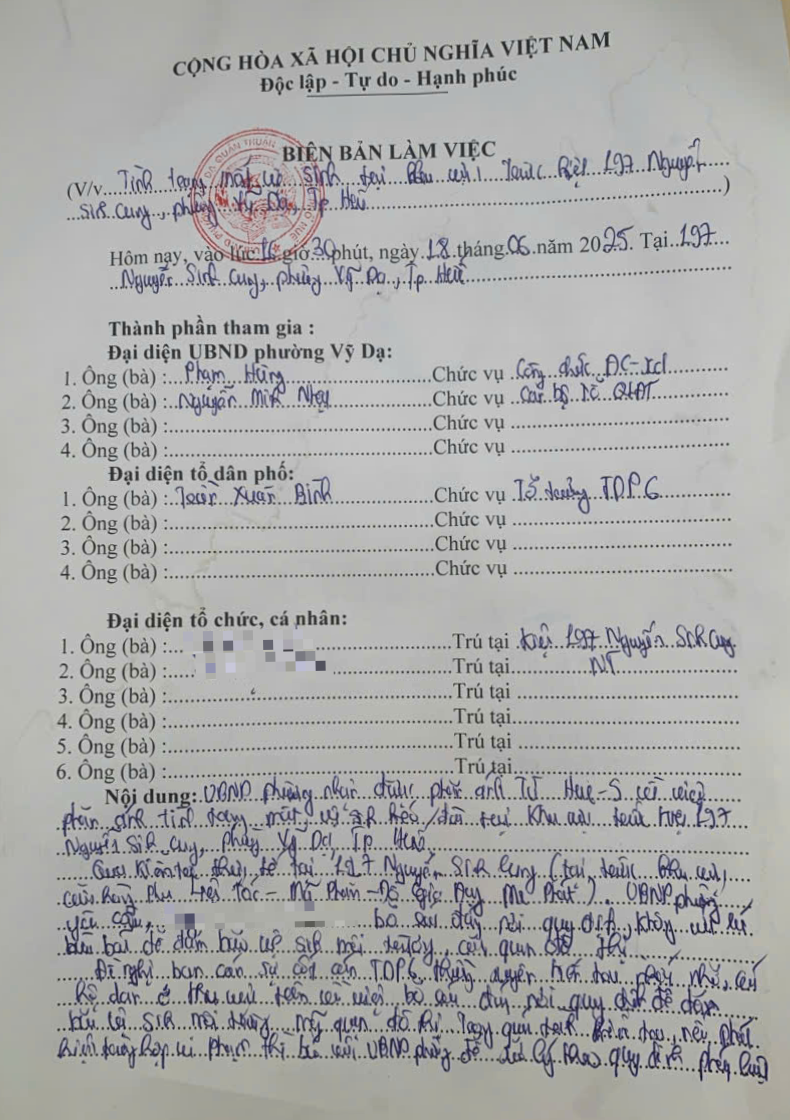 CỘNG HÒA XÃ HỘI CHỦ NGHĨA VIỆT NAM
Độc lập - Tự do - Hạnh phúc
BIÊN BẢN LÀM VIỆC
(V/v Tình trạng mất vệ sinh tại khu vực trước kiệt 197 Nguyễn
Sinh Cung, phường Vỹ Dạ, Tp Huế)
Hôm nay, vào lúc 16 giờ 30 phút, ngày 18 tháng 06 năm 2025. Tại 197
Nguyễn Sinh Cung, phường Vỹ Dạ, Tp Huế
Thành phần tham gia :
Đại diện UBND phường Vỹ Dạ:
1. Ông (bà) : Phạm Hùng Chức vụ Công chức ĐC-XD
2. Ông (bà) : Nguyễn Minh Chức vụ Cán bộ Tổ QLĐT
3. Ông (bà) : Chức vụ
4. Ông (bà) : Chức vụ
Đại diện tổ dân phố:
1. Ông (bà) : Trần Xuân Bình Chức vụ Tổ trưởng TDP 6
2. Ông (bà) : Chức vụ
3. Ông (bà) : Chức vụ
4. Ông (bà) : Chức vụ
Đại diện tổ chức, cá nhân:
1. Ông (bà) : Trú tại kiệt 197 Nguyễn Sinh Cung
2. Ông (bà) : Trú tại NT
3. Ông (bà) : Trú tại
4. Ông (bà) : Trú tại
5. Ông (bà) : Trú tại
6. Ông (bà) : Trú tại
Nội dung: UBND phường nhận được phản ánh Từ Hue-S về việc
phản ánh tình trạng mất vệ sinh tại khu vực trước kiệt 197
Nguyễn Sinh Cung, phường Vỹ Dạ, Tp Huế
Qua kiểm tra thực tế tại 197 Nguyễn Sinh Cung (tại trước khu vực
cửa hàng Tóc - Mỹ Phẩm - Phát). UBND phường
yêu cầu bỏ rác đúng nơi quy định, không vứt
bừa bãi để đảm bảo vệ sinh môi trường, cảnh quan đô thị
Đề nghị ban TDP 6 tuyên các
hộ dân ở khu vực trên về việc bỏ rác đúng nơi quy định để đảm
bảo vệ sinh môi trường, mỹ quan đô thị. Trong quá trình kiểm tra, nếu phát
hiện trường hợp vi phạm thì báo với UBND phường để xử lý theo quy định pháp luật